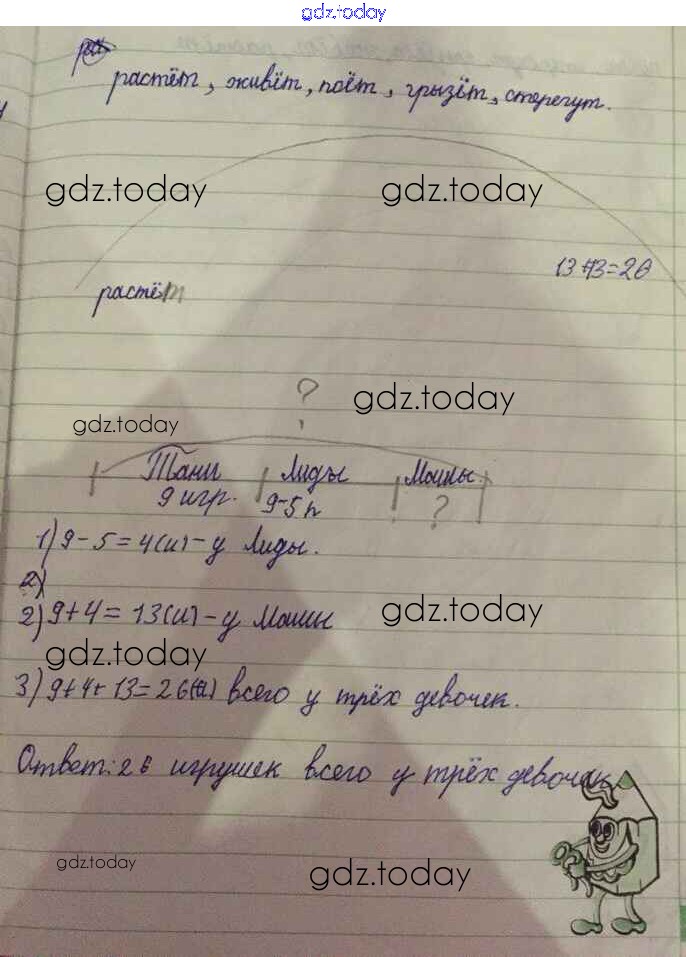 gdz.today
растёт, живёт, поёт, грызёт, стерегут.
gdz.today gdz.today
13+13=26
растёт
?
gdz.today
gdz.today
Тани Лиды Маши
9 игр. 9-5 ?
1) 9-5=4(и)-у Лиды.
2)
2) 9+4=13(и)-у Маши
gdz.today
gdz.today
3) 9+4+13=26(и) всего у трёх девочек.
Ответ: 26 игрушек всего у трёх девочек
gdz.today
gdz.today